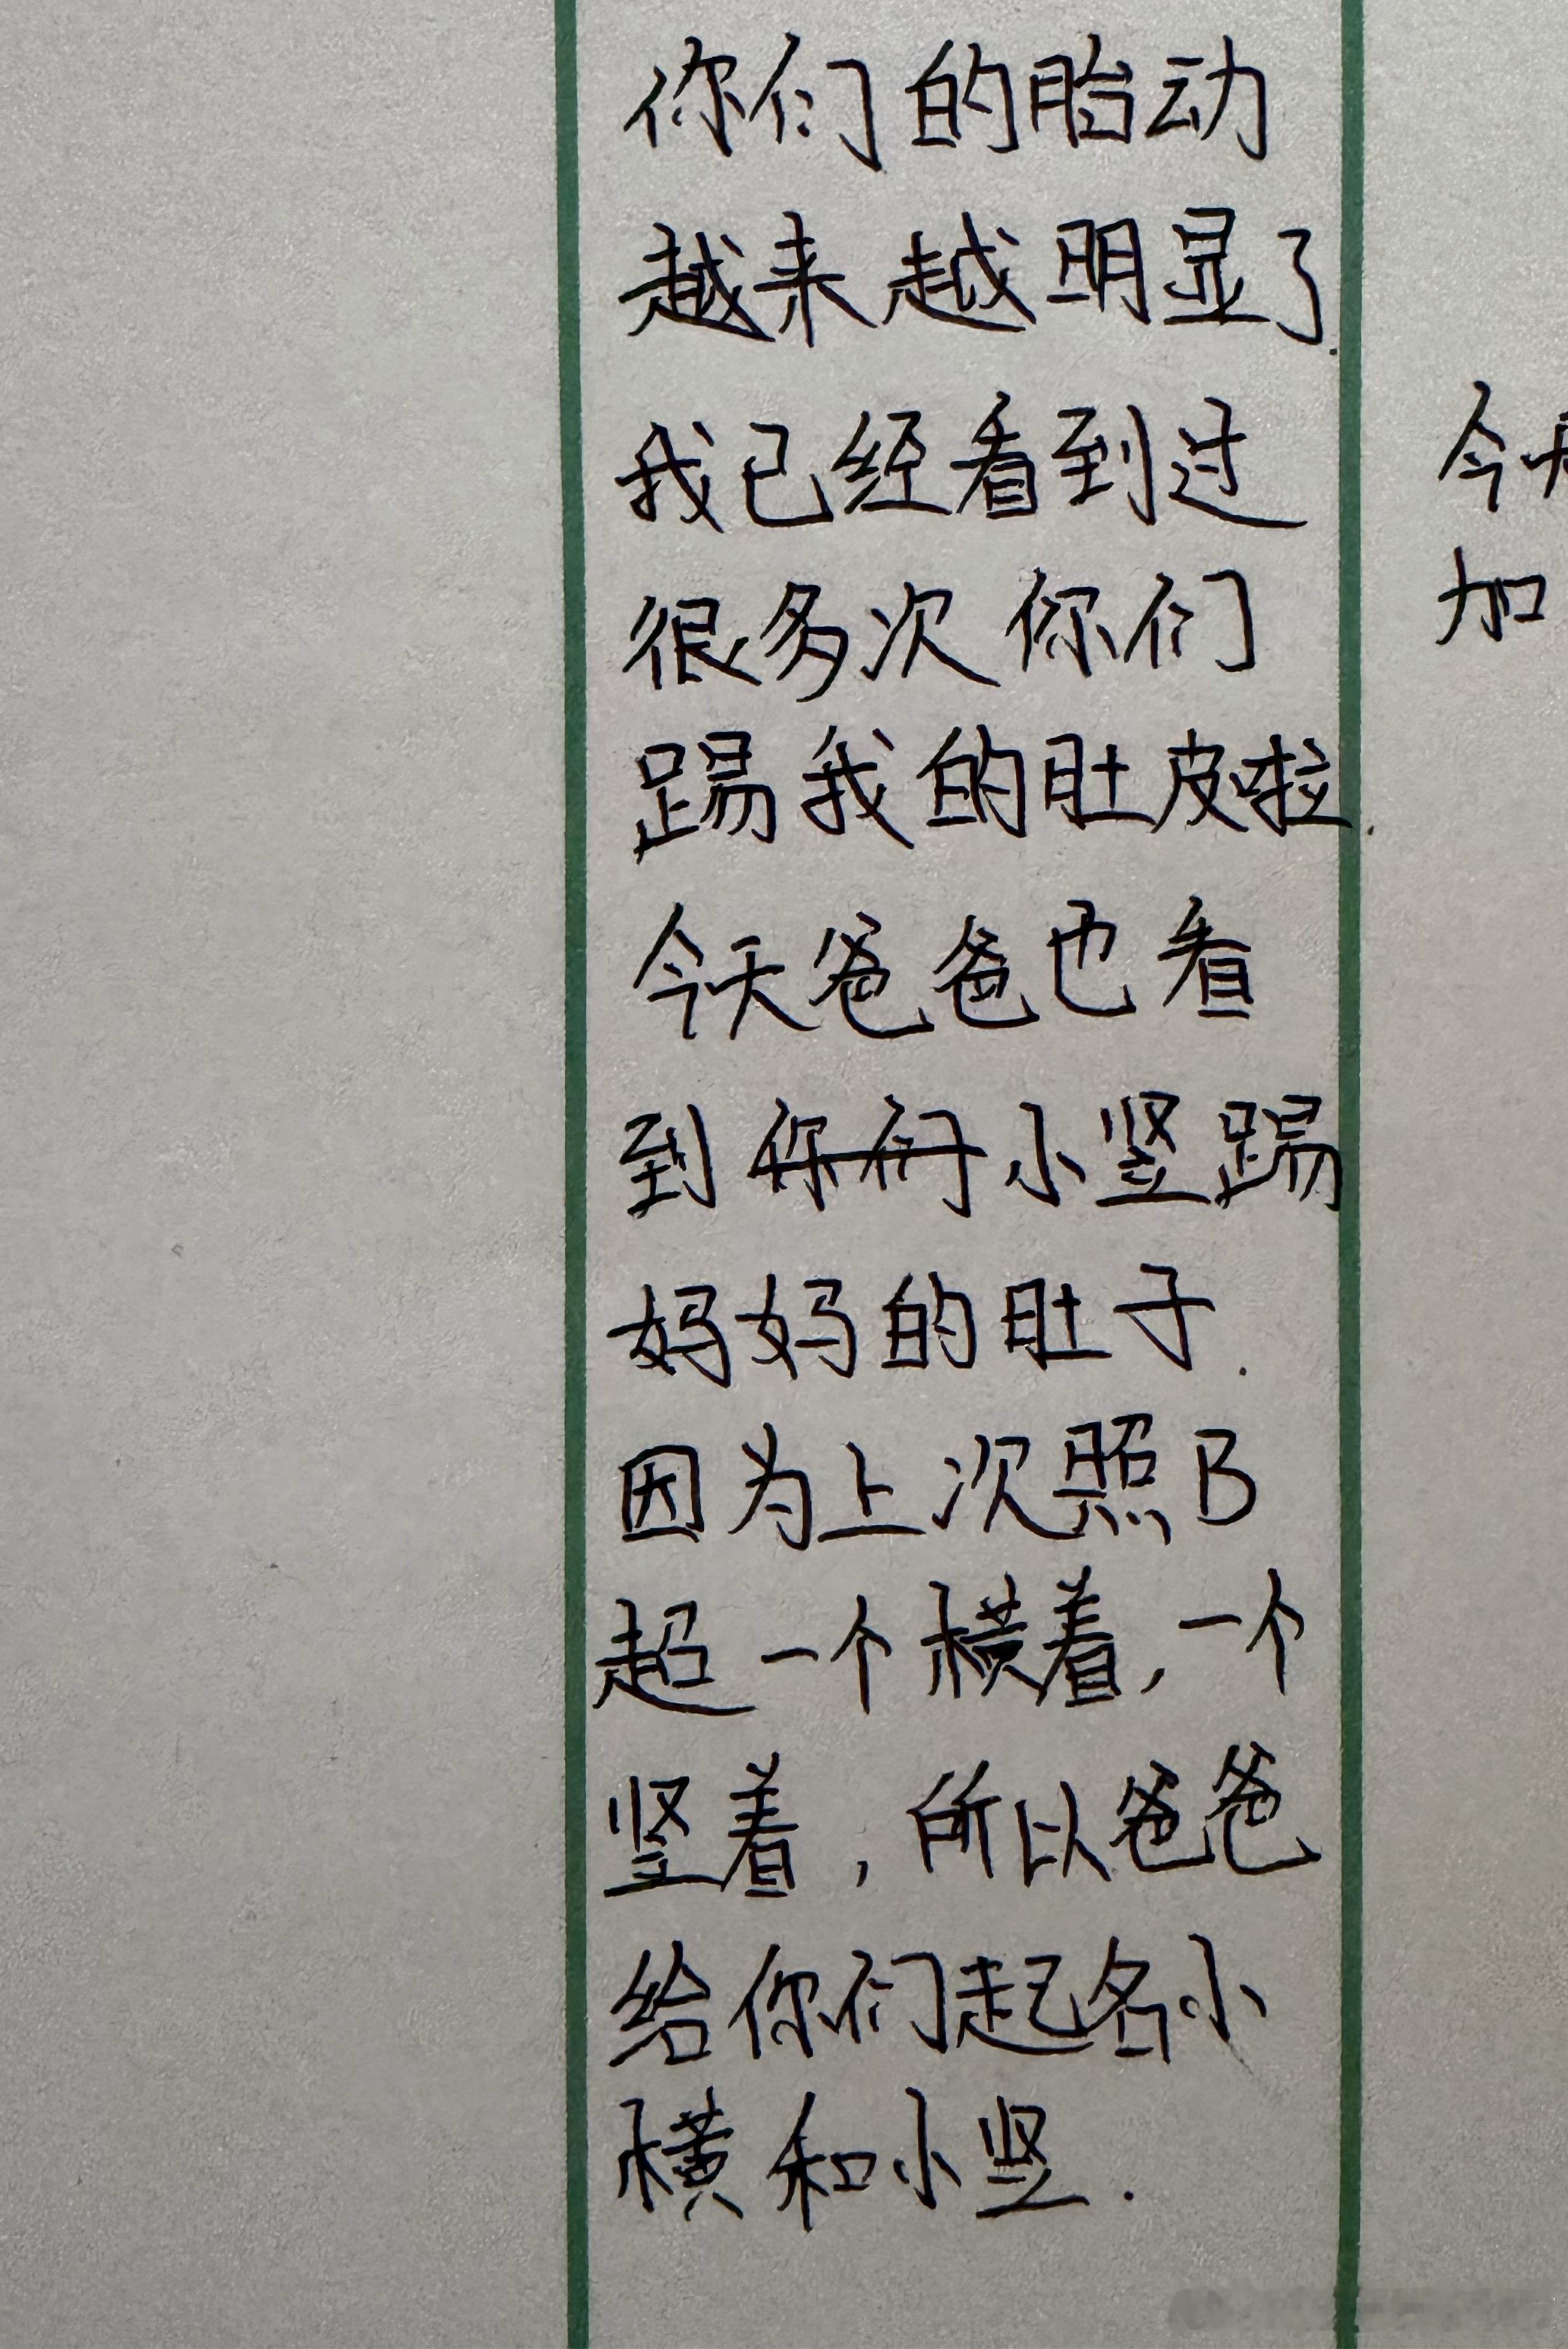 你们的胎动
越来越明显了.
我已经看到过
很多次你们
踢我的肚皮啦.
今天爸爸也看
到你们小竖踢
妈妈的肚子.
因为上次照B
超一个横着,一个
竖着,所以爸爸
给你们起名小
横和小竖.
今
加